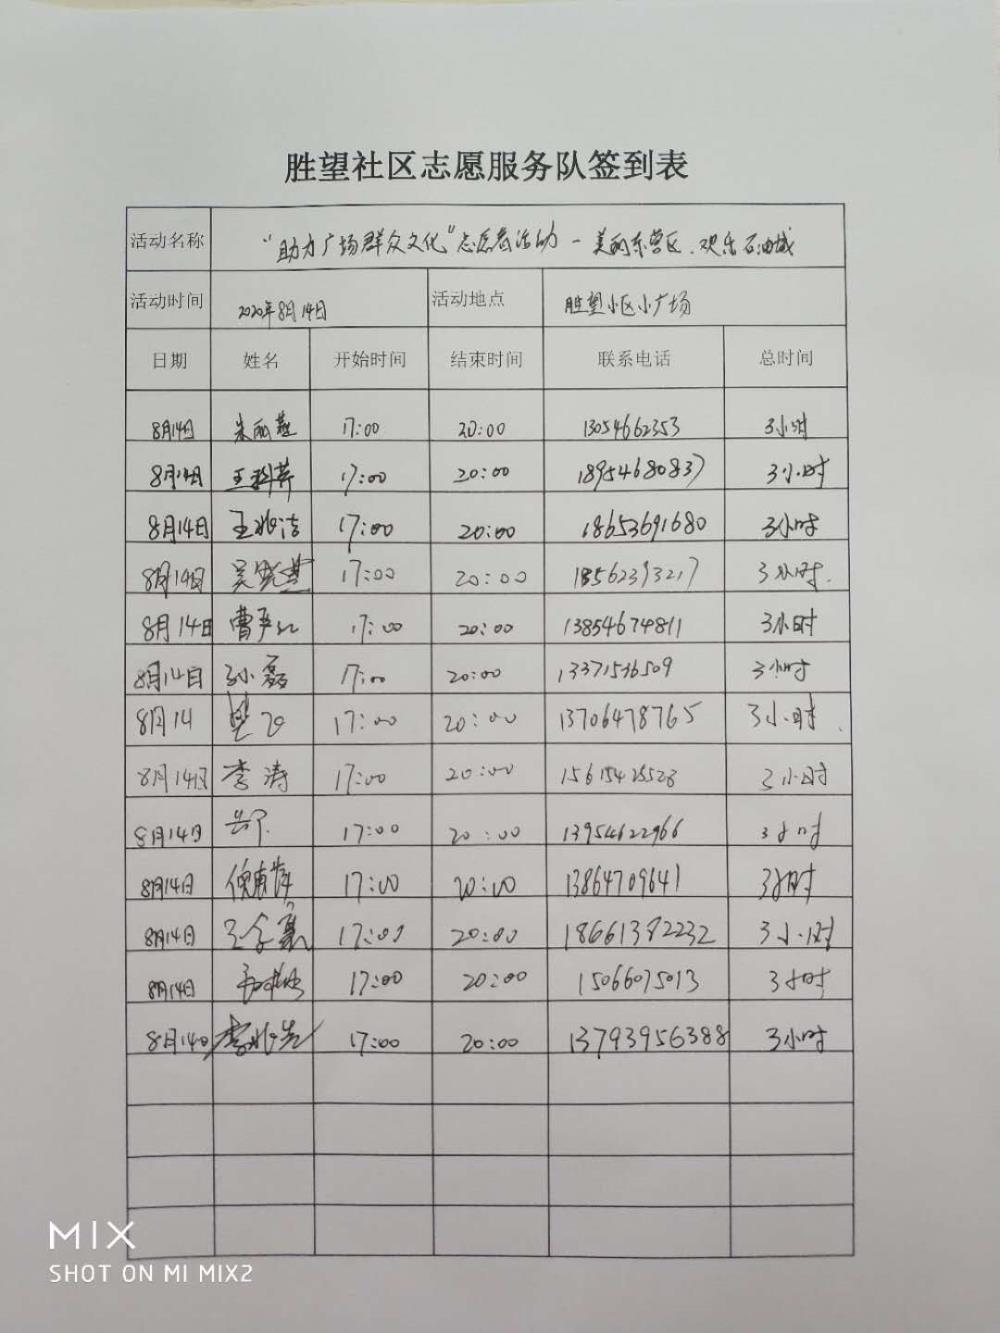 胜望社区志愿服务队签到表
活动名称 "助力广场群众文化"志愿者活动 — 美丽东营区、欢乐石油城
活动时间 2020年8月14日 活动地点 胜望小区小广场
日期 姓名 开始时间 结束时间 联系电话 总时间
8月14日 朱丽燕 17:00 20:00 13054662353 3小时
8月14日 王利萍 17:00 20:00 18954680837 3小时
8月14日 王兆洁 17:00 20:00 18653691680 3小时
8月14日 吴晓燕 17:00 20:00 18562393217 3小时.
8月14日 曹严红 17:00 20:00 13854674811 3小时
8月14日 孙磊 17:00 20:00 13371536509 3小时
8月14 17:00 20:00 13706478765 3小时.
8月14日 李涛 17:00 20:00 15615428528 3小时
8月14日 17:00 20:00 13954622966 3小时
8月14日 17:00 20:00 13864709641 3小时
8月14日 17:00 20:00 18661392232 3小时
8月14日 17:00 20:00 15066075013 3小时
8月14日 李兆先 17:00 20:00 13793956388 3小时
MIX
SHOT ON MI MIX2